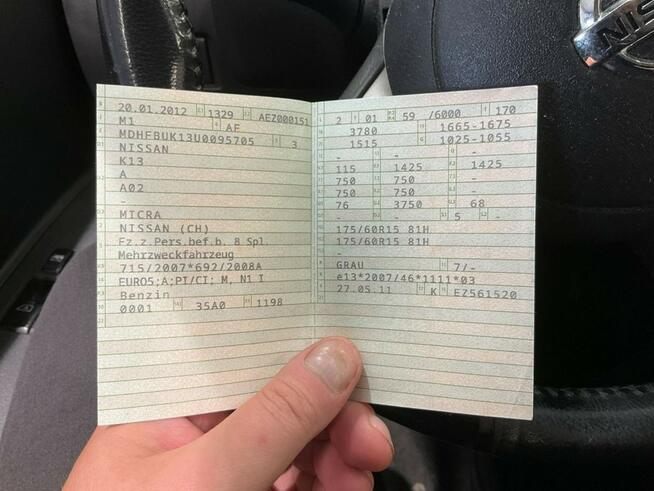 NISS
20.01.2012 1329 AEZ000151
M1 AF
MDHFBUK13U0095705 3
NISSAN
K13
A
A02
-
MICRA
NISSAN (CH)
Fz.z.Pers.bef.b. 8 Spl.
Mehrzweckfahrzeug
715/2007*692/2008A
EURO5;A;PI/CI; M, N1 I
Benzin
0001 35A0 1198
2 01 59 /6000 170
3780 1665-1675
1515 1025-1055
- - -
115 1425 1425
750 750 -
750 750 -
76 3750 68
- - 5 -
175/60R15 81H
175/60R15 81H
-
GRAU 7/-
e13*2007/46*1111*03
27.05.11 K EZ561520